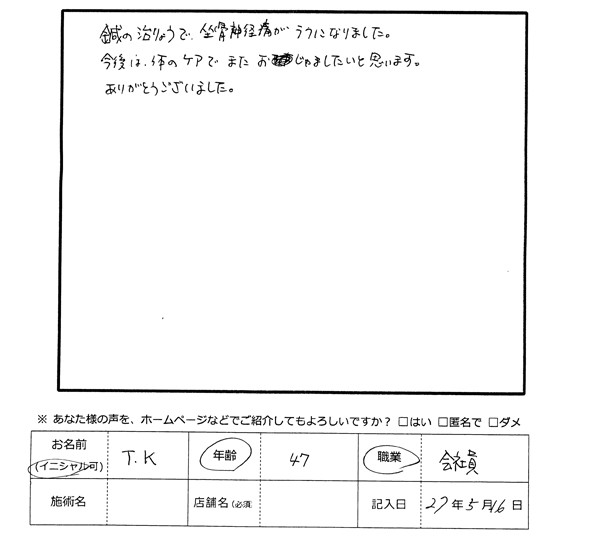 鍼の治りょうで、坐骨神経痛がラクになりました。
今後は、体のケアでまたおじゃましたいと思います。
ありがとうございました。
※ あなた様の声を、ホームページなどでご紹介してもよろしいですか？ □はい □匿名で □ダメ
お名前 (イニシャル可) T.K 年齢 47 職業 会社員
施術名 店舗名(必須) 記入日 27年5月16日